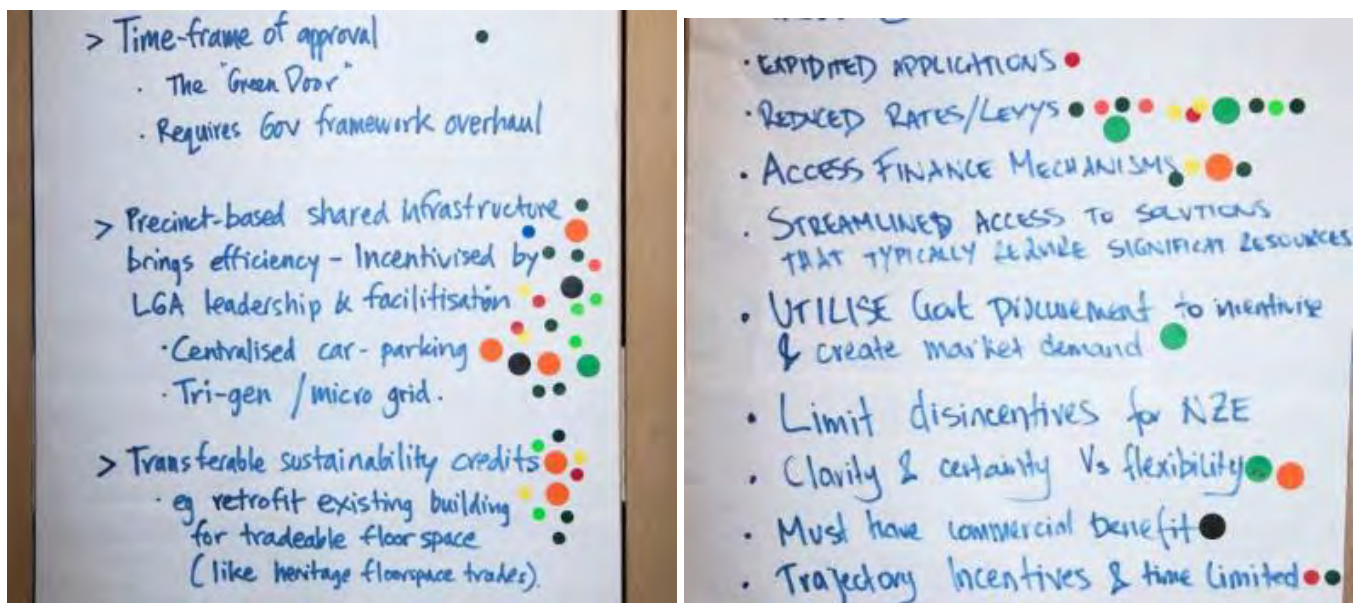 > Time-frame of approval
· The "Green Door"
· Requires Gov framework overhaul
> Precinct-based shared infrastructure
brings efficiency - Incentivised by
LGA leadership & facilitisation
· Centralised car-parking
· Tri-gen / micro grid.
> Transferable sustainability credits
· eg retrofit existing building
for tradeable floor space
(like heritage floorspace trades).
· EXPIDITED APPLICATIONS
· REDUCED RATES/LEVYS
· ACCESS FINANCE MECHANISMS
· STREAMLINED ACCESS TO SOLUTIONS
THAT TYPICALLY REQUIRE SIGNIFICAT RESOURCES
· UTILISE Govt Procurement to incentivise
& create market demand
· Limit disincentives for NZE
· Clarity & certainty Vs flexibility
· Must have commercial benefit
· Trajectory Incentives & time limited